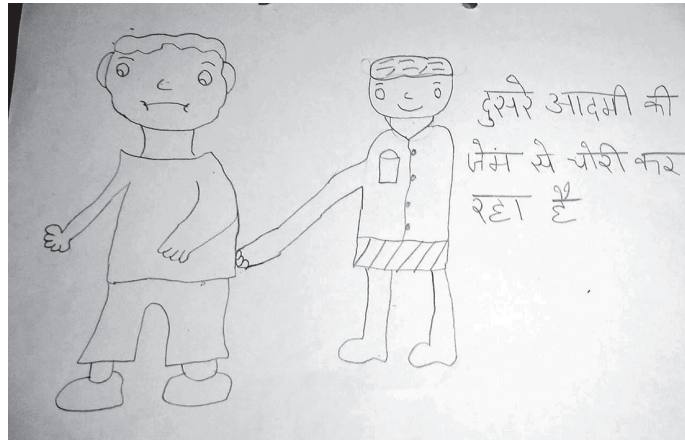 दुसरे आदमी की
जेमं से चोरी कर
रहा है